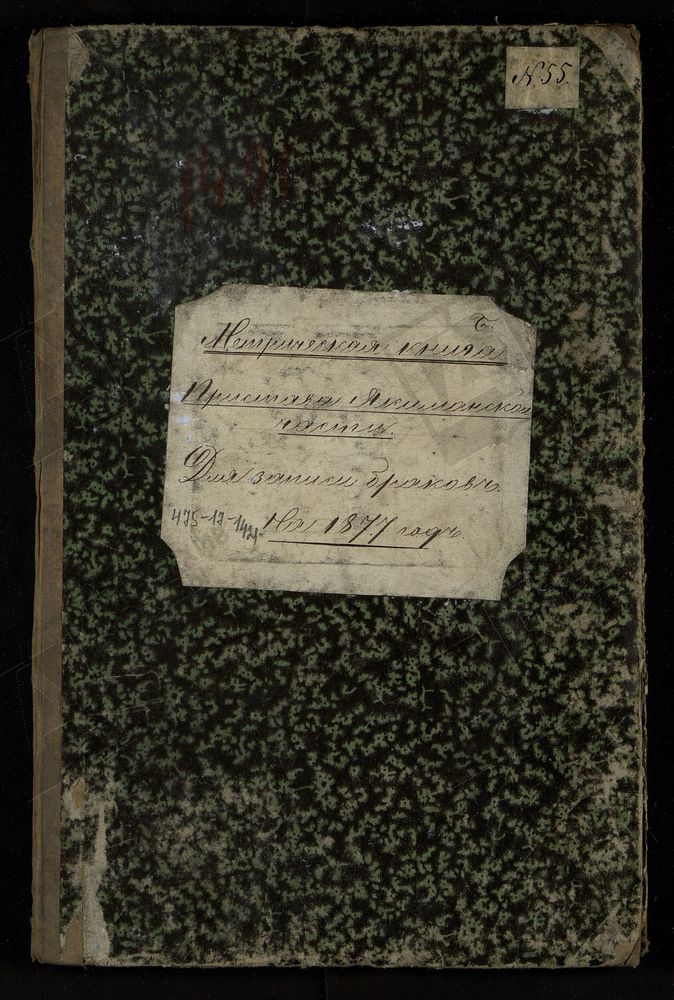 № 55.
Б
Метрическая книга
Пристава Якиманской
части.
Для записи браковъ.
На 1877 годъ.
475-17-1421